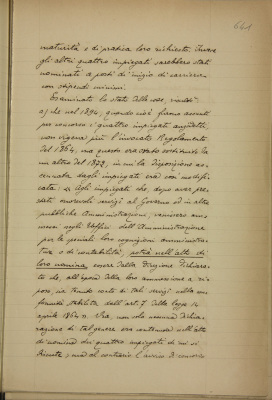 641
maturità e di pratica loro richiesta. Invece
gli altri quattro impiegati sarebbero stati
nominati a posti di inizio di carriera
con stipendi minimi.
Esaminato lo stato delle cose, risulta:
a) che nel 1894, quando cioè furono assunti
per concorso i quattro impiegati anzidetti
non vigeva più l'invocato Regolamento
del 1864, ma questo era stato sostituito da
un altro del 1872, in cui la disposizione ac-
cennata dagli impiegati era così modifi-
cata: "Agli impiegati che, dopo aver pre-
stati onorevoli servigi al Governo od in altre
pubbliche Amministrazioni, venivano am-
messi negli Uffici dell'Amministrazione
per le speciali loro cognizioni amministra-
tive o di contabilità, potrà nell'atto di
loro nomina, essere dalla Direzione dichiara-
to che, all'epoca della loro ammissione a ri-
poso, sia tenuto conto di tali servigi nella
stabilita dall'art. 7 della legge 14
aprile 1864". Ora, non solo nessuna dichia-
razione di tal genere era contenuta nell'atto
di nomina dei quattro impiegati di cui si
tratta, ma al contrario l'avviso di concorso